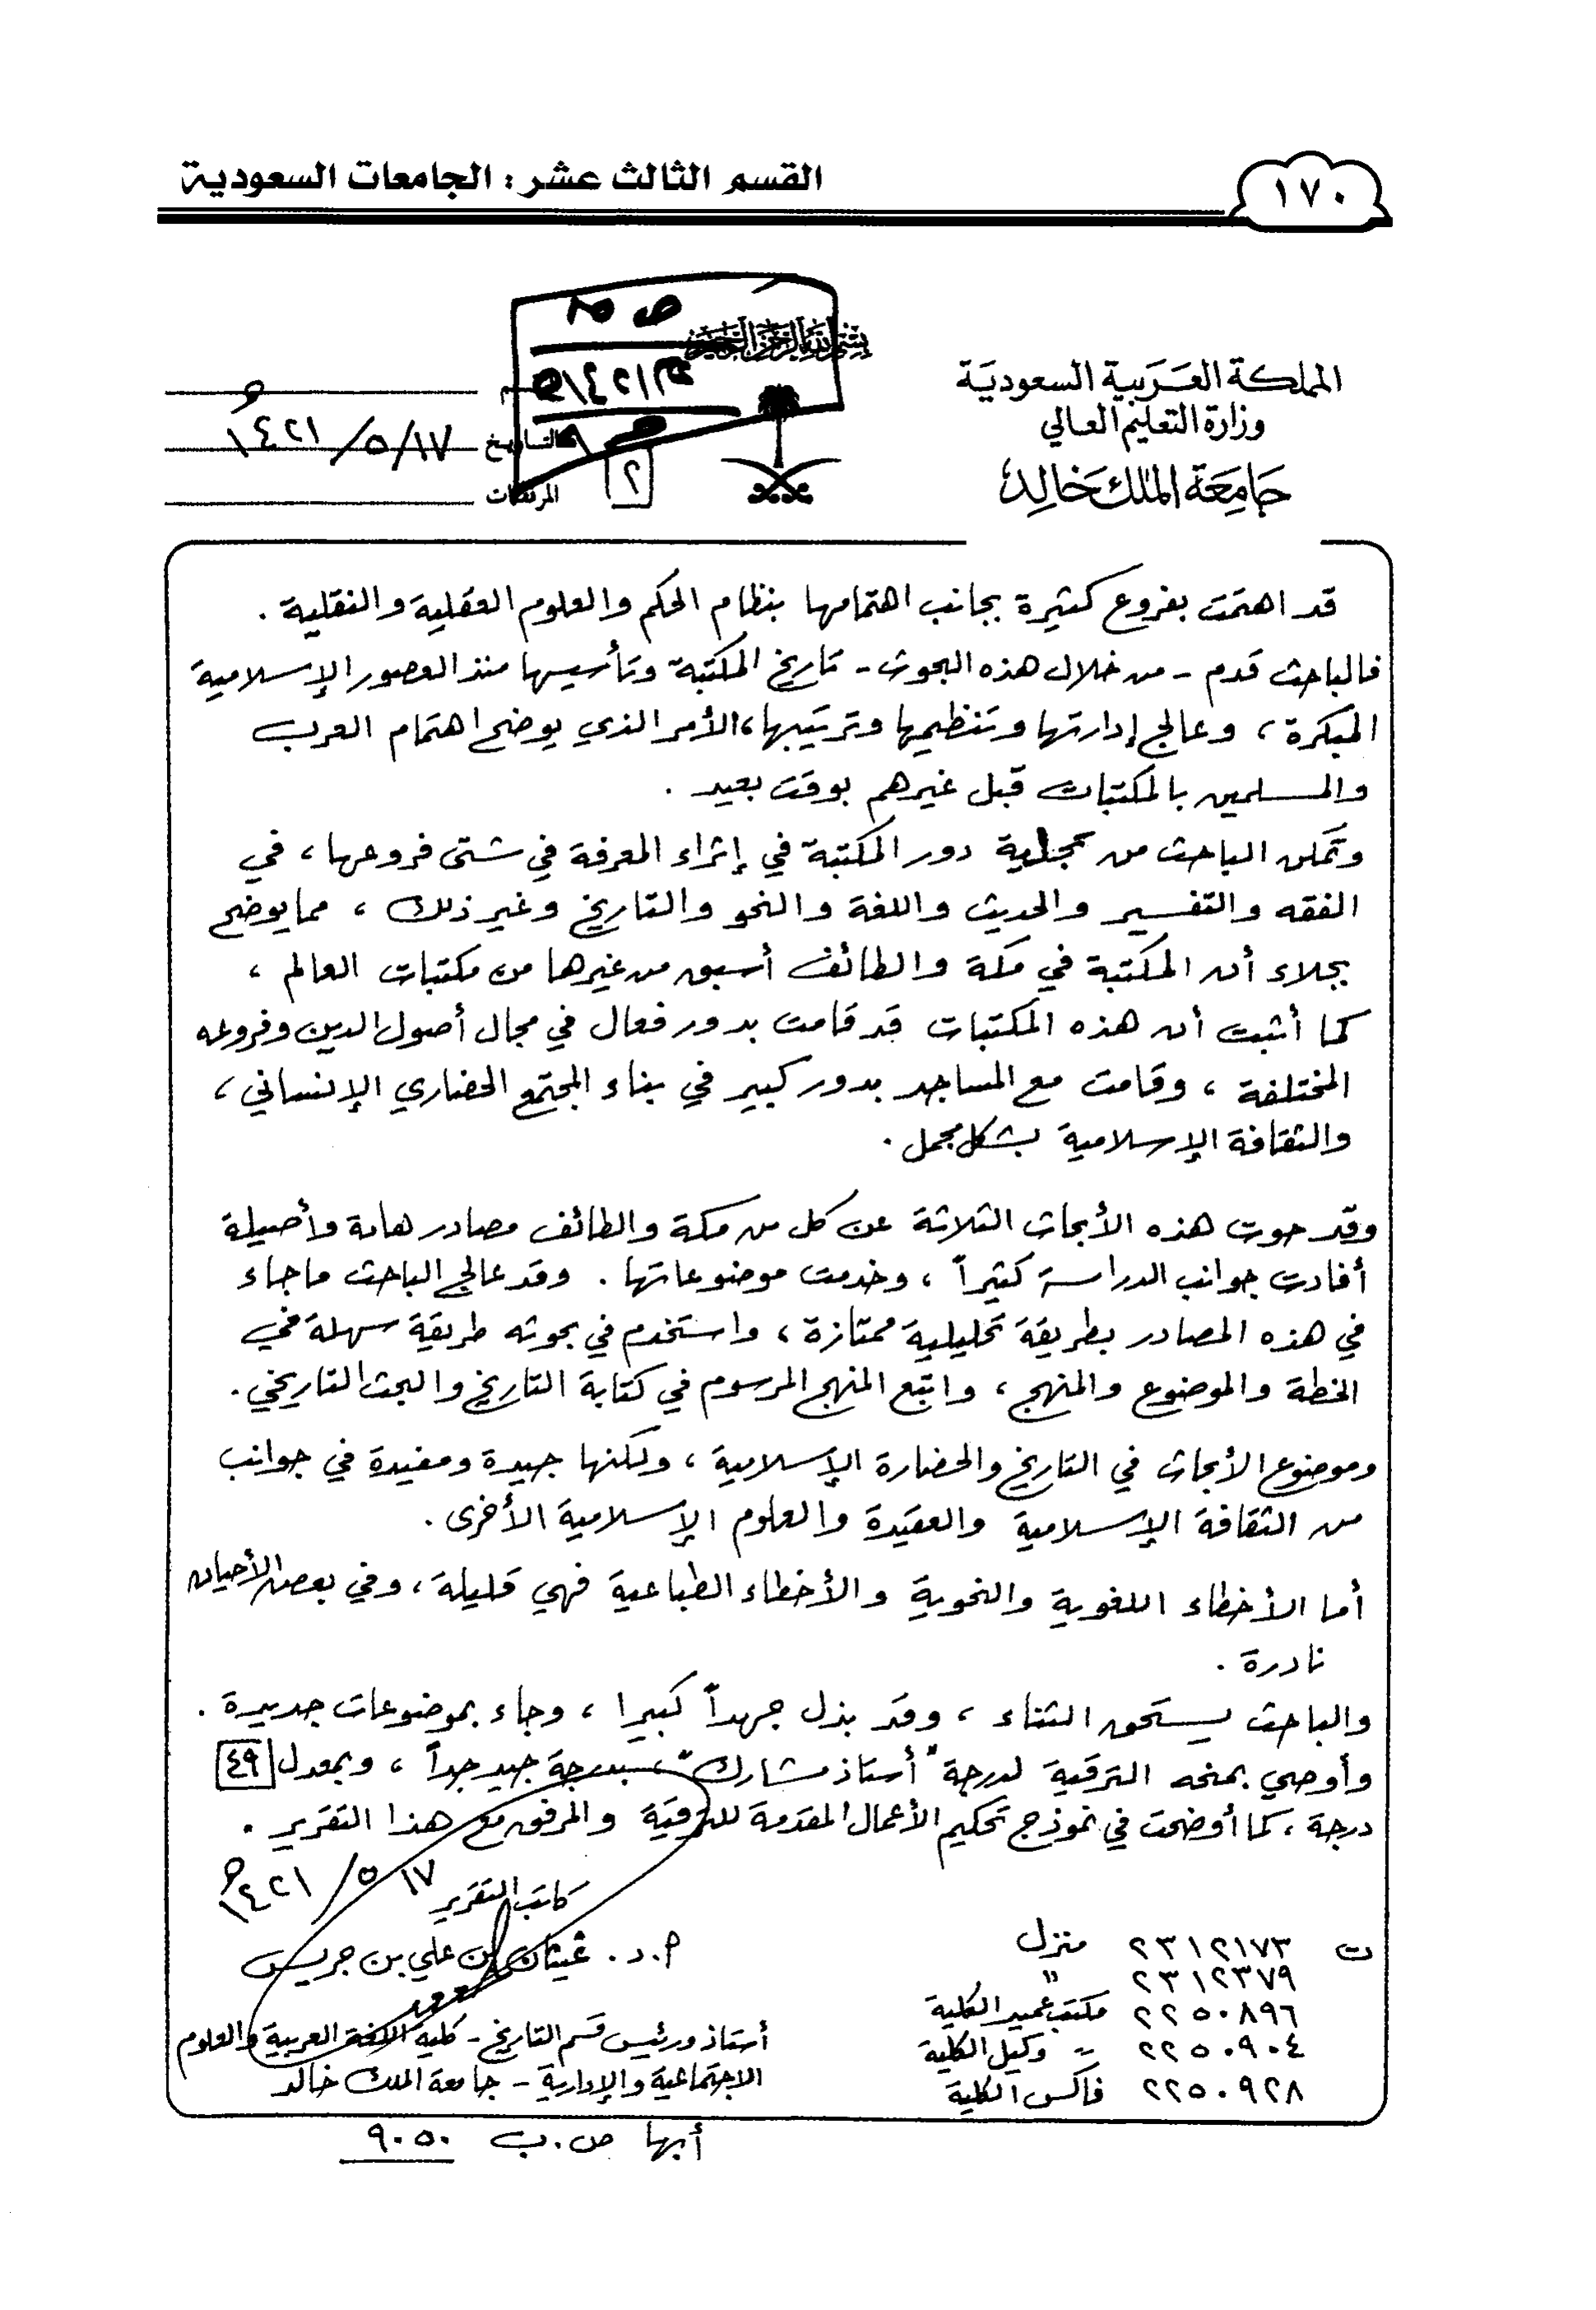 ١٧٠
القسم الثالث عشر : الجامعات السعودية
بسم الله الرحمن الرحيم
المملكة العربية السعودية
وزارة التعليم العالي
جامعة الملك خالد
التاريخ ١٧/٥/١٤٢١هـ
المرفقات
٢
قد اهتمت بفروع كثيرة بجانب اهتمامها بنظام الحكم والعلوم العقلية والنقلية .
فالباحث قدم - من خلال هذه البحوث - تاريخ المكتبة وتأسيسها منذ العصور الإسلامية
المبكرة ، وعالج إدارتها وتنظيمها وترتيبها ، الأمر الذي يوضح اهتمام العرب
والمسلمين بالمكتبات قبل غيرهم بوقت بعيد .
وتمكن الباحث من تجلية دور المكتبة في إثراء المعرفة في شتى فروعها ، في
الفقه والتفسير والحديث واللغة والنحو والتاريخ وغير ذلك ، مما يوضح
بجلاء أن المكتبة في مكة والطائف أسبق من غيرها من مكتبات العالم ،
كما أثبت أن هذه المكتبات قد قامت بدور فعال في مجال أصول الدين وفروعه
المختلفة ، وقامت مع المساجد بدور كبير في بناء المجتمع الحضاري الإنساني ،
والثقافة الإسلامية بشكل مجمل .
وقد حوت هذه الأبحاث الثلاثة عن كل من مكة والطائف مصادر هامة وأصيلة
أفادت جوانب الدراسة كثيراً ، وخدمت موضوعاتها . وقد عالج الباحث ما جاء
في هذه المصادر بطريقة تحليلية ممتازة ، واستخدم في بحوثه طريقة سهلة في
الخطة والموضوع والمنهج ، واتبع المنهج المرسوم في كتابة التاريخ والبحث التاريخي .
وموضوع الأبحاث في التاريخ والحضارة الإسلامية ، ولكنها جيدة ومفيدة في جوانب
من الثقافة الإسلامية والعقيدة والعلوم الإسلامية الأخرى .
أما الأخطاء اللغوية والنحوية والأخطاء الطباعية فهي قليلة ، وفي بعض الأحيان
نادرة .
والباحث يستحق الثناء ، وقد بذل جهداً كبيرا ، وجاء بموضوعات جديدة .
وأوصي بمنحه الترقية لدرجة " أستاذ مشارك " ، بدرجة جيد جداً ، وبمعدل ٤٩
درجة ، كما أوضحت في نموذج تحكيم الأعمال المقدمة للترقية والمرفق مع هذا التقرير .
١٧/٥/١٤٢١هـ
كاتب التقرير
أ.د. غيثان بن علي بن جريس
أستاذ ورئيس قسم التاريخ - كلية اللغة العربية والعلوم
الاجتماعية والإدارية - جامعة الملك خالد
أبها ص.ب ٩٠٥٠
ت ٢٣١٢١٧٣ منزل
٢٣١٢٣٧٩ "
٢٢٥٠٨٩٦ مكتب عميد الكلية
٢٢٥٠٩٠٤ " وكيل الكلية
٢٢٥٠٩٢٨ فاكس الكلية